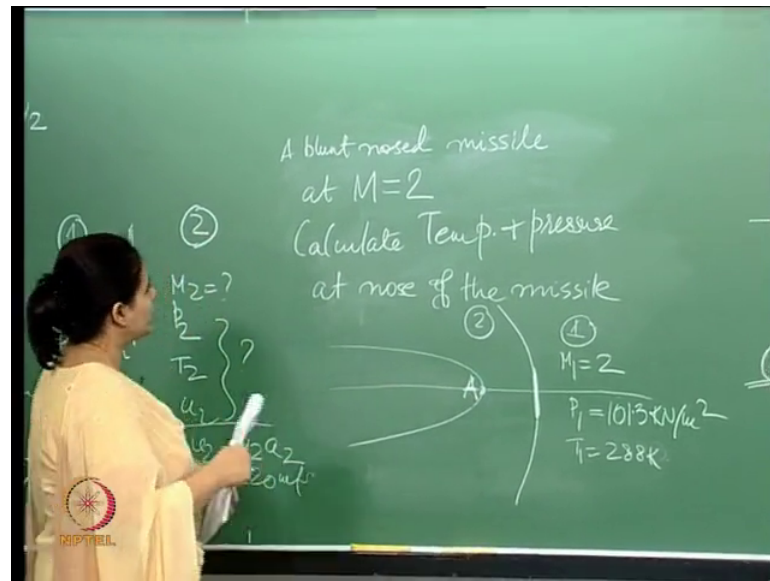 1/2
A blunt nosed missile
at M=2
Calculate Temp. + pressure
at nose of the missile
①
②
M2=?
p2
T2
a2
?
2a2
20m/s
②
①
M1=2
A
P1=101.3KN/m²
T1=288K
NPTEL